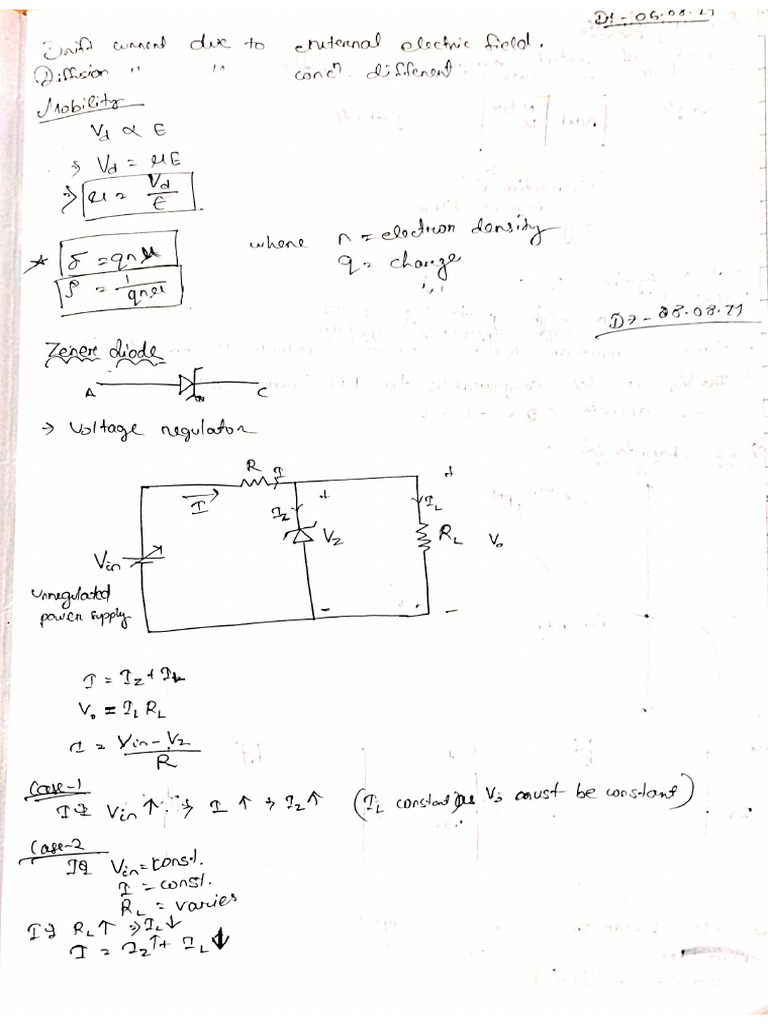 D1 - 06.08.21
Drift current due to external electric field.
Diffusion " " concn different.
Mobility
Vd ∝ E
⇒ Vd = μE
⇒ μ = Vd/E
* σ = qnμ
ρ = 1/qnμ
where n = electron density
q = charge
D2 - 08.08.21
Zener diode
A C
→ Voltage regulator
R I
I
IZ
VZ
+
IL
RL
V₀
Vin
Unregulated
power supply
+
-
-
I = IZ + IL
V₀ = IL RL
I = Vin - VZ / R
Case-1
If Vin ↑ ⇒ I ↑ ⇒ IZ ↑ (IL constant as V₀ must be constant)
Case-2
If Vin = const.
I = const.
RL = varies
If RL ↑ ⇒ IL ↓
I = IZ ↑ + IL ↓